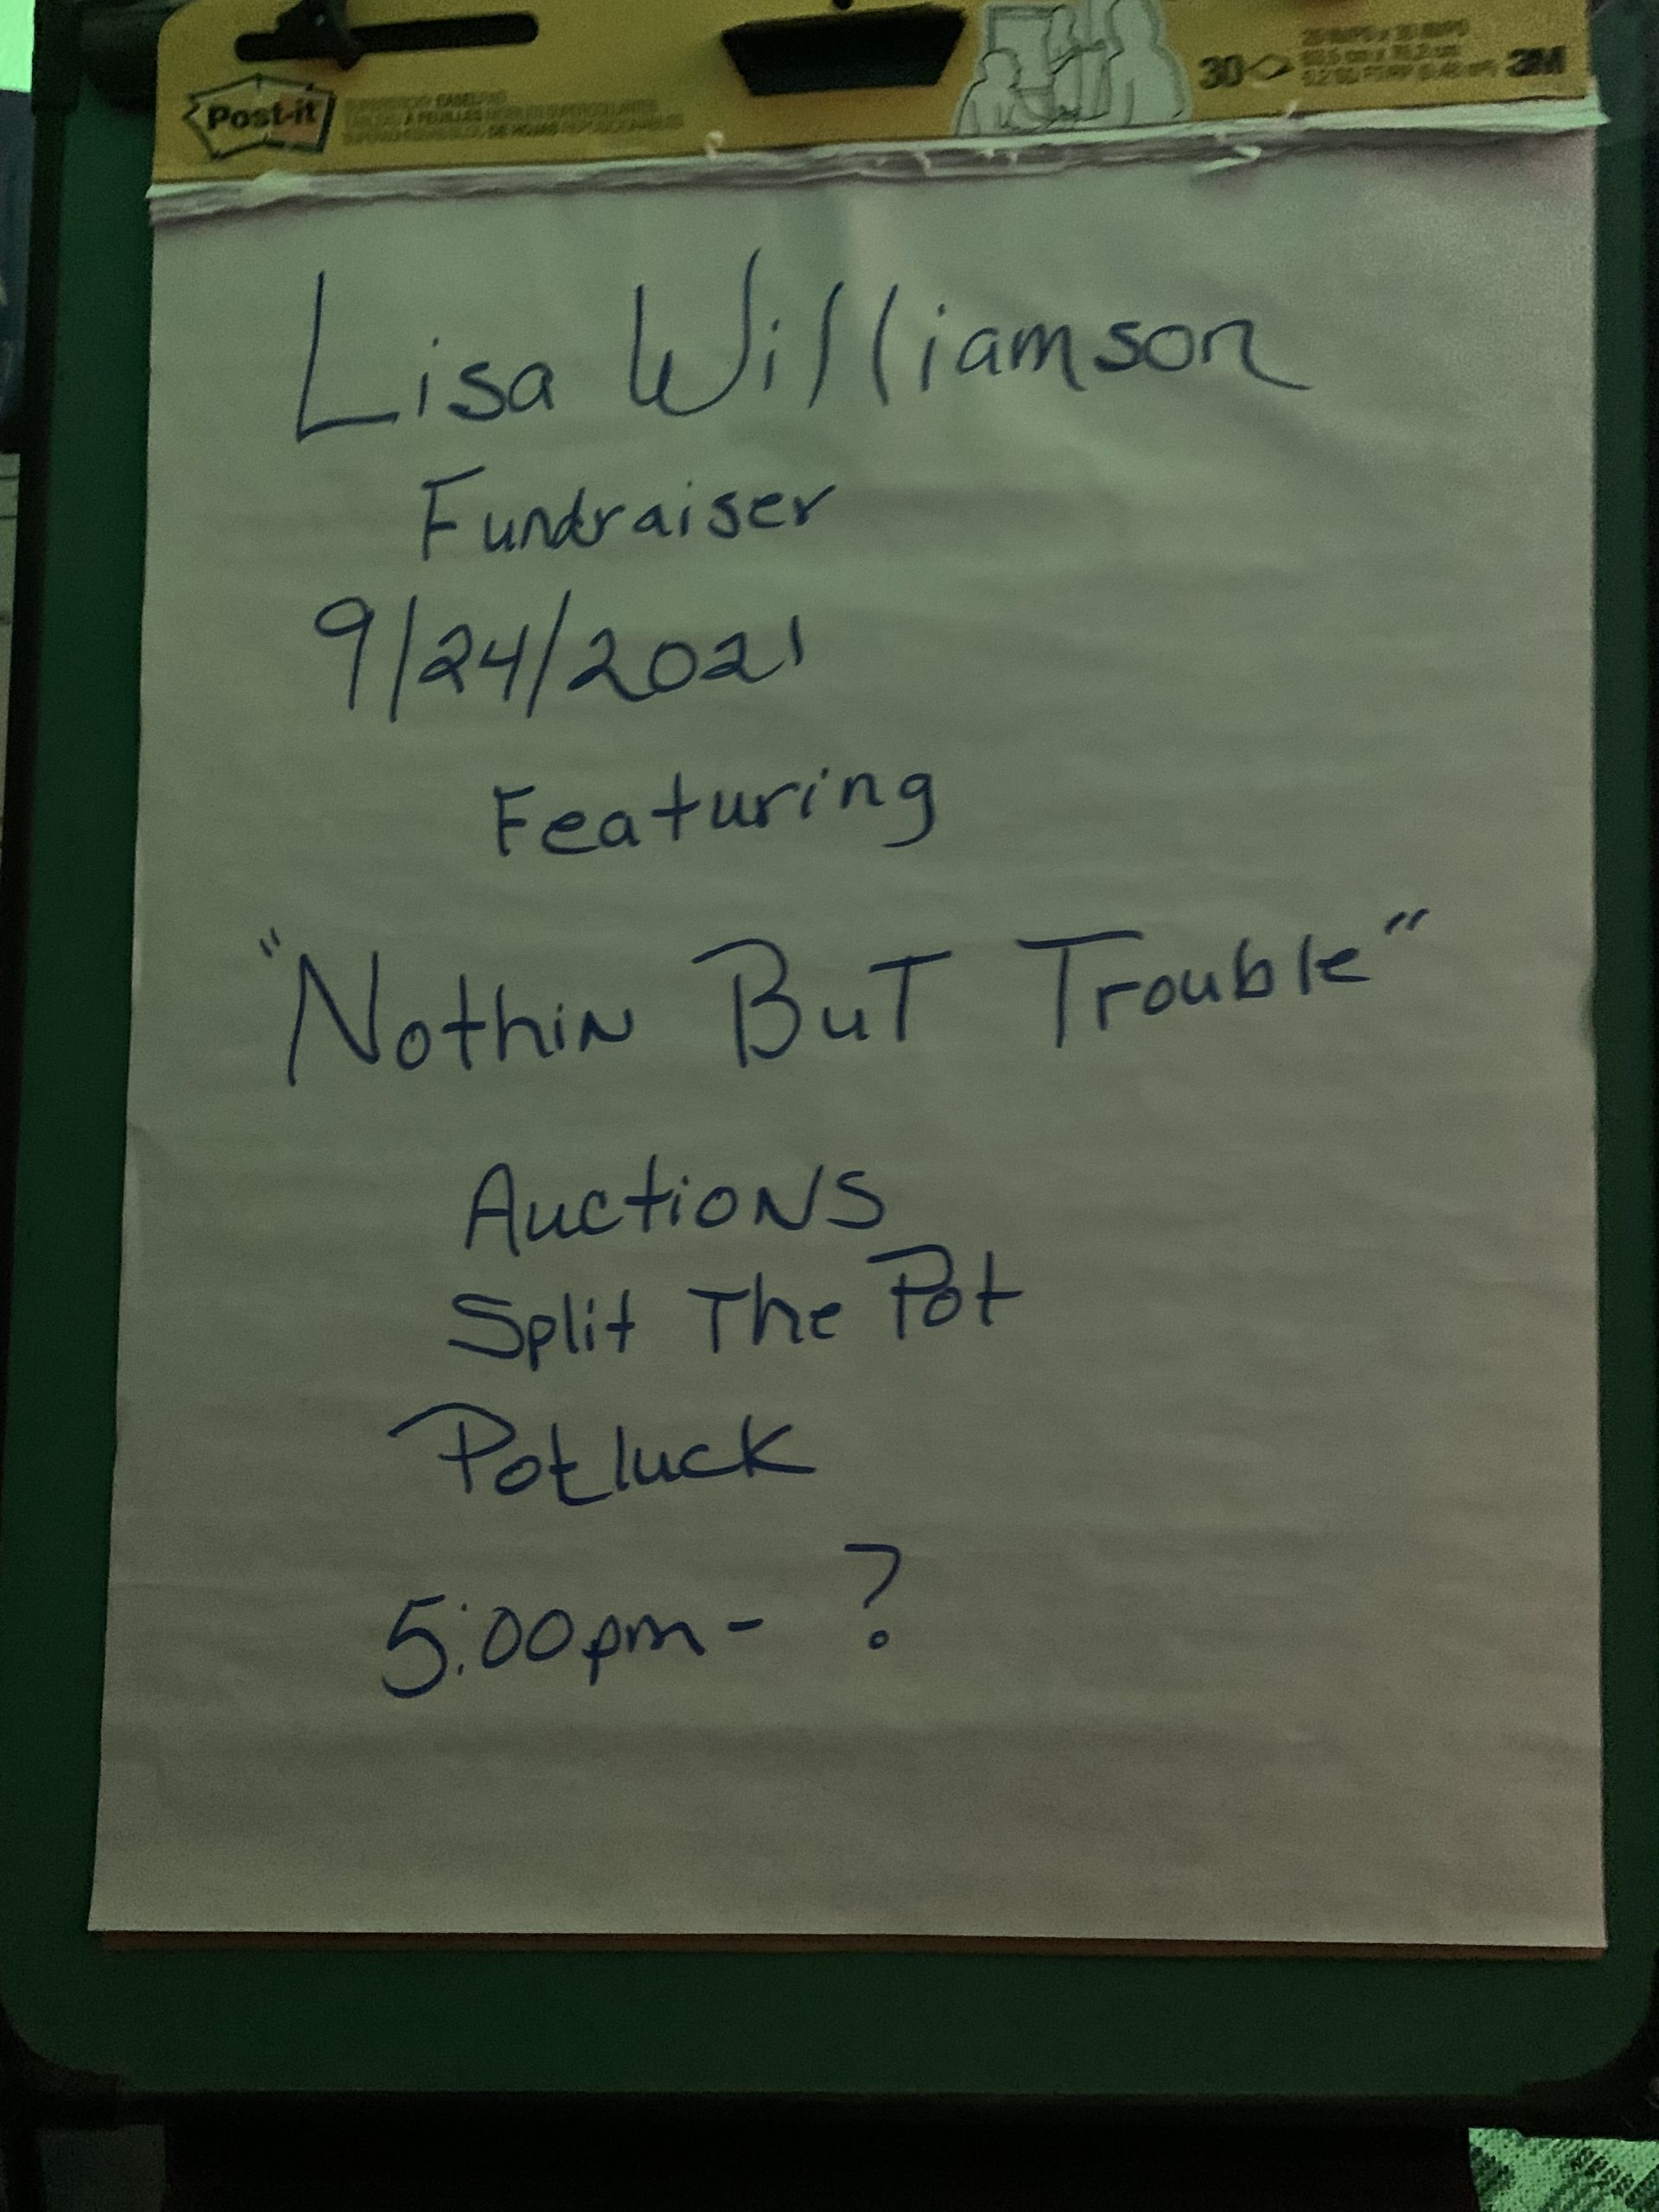 Post-it
30
3M
Lisa Williamson
Fundraiser
9/24/2021
Featuring
"Nothin But Trouble"
Auctions
Split The Pot
Potluck
5:00pm- ?